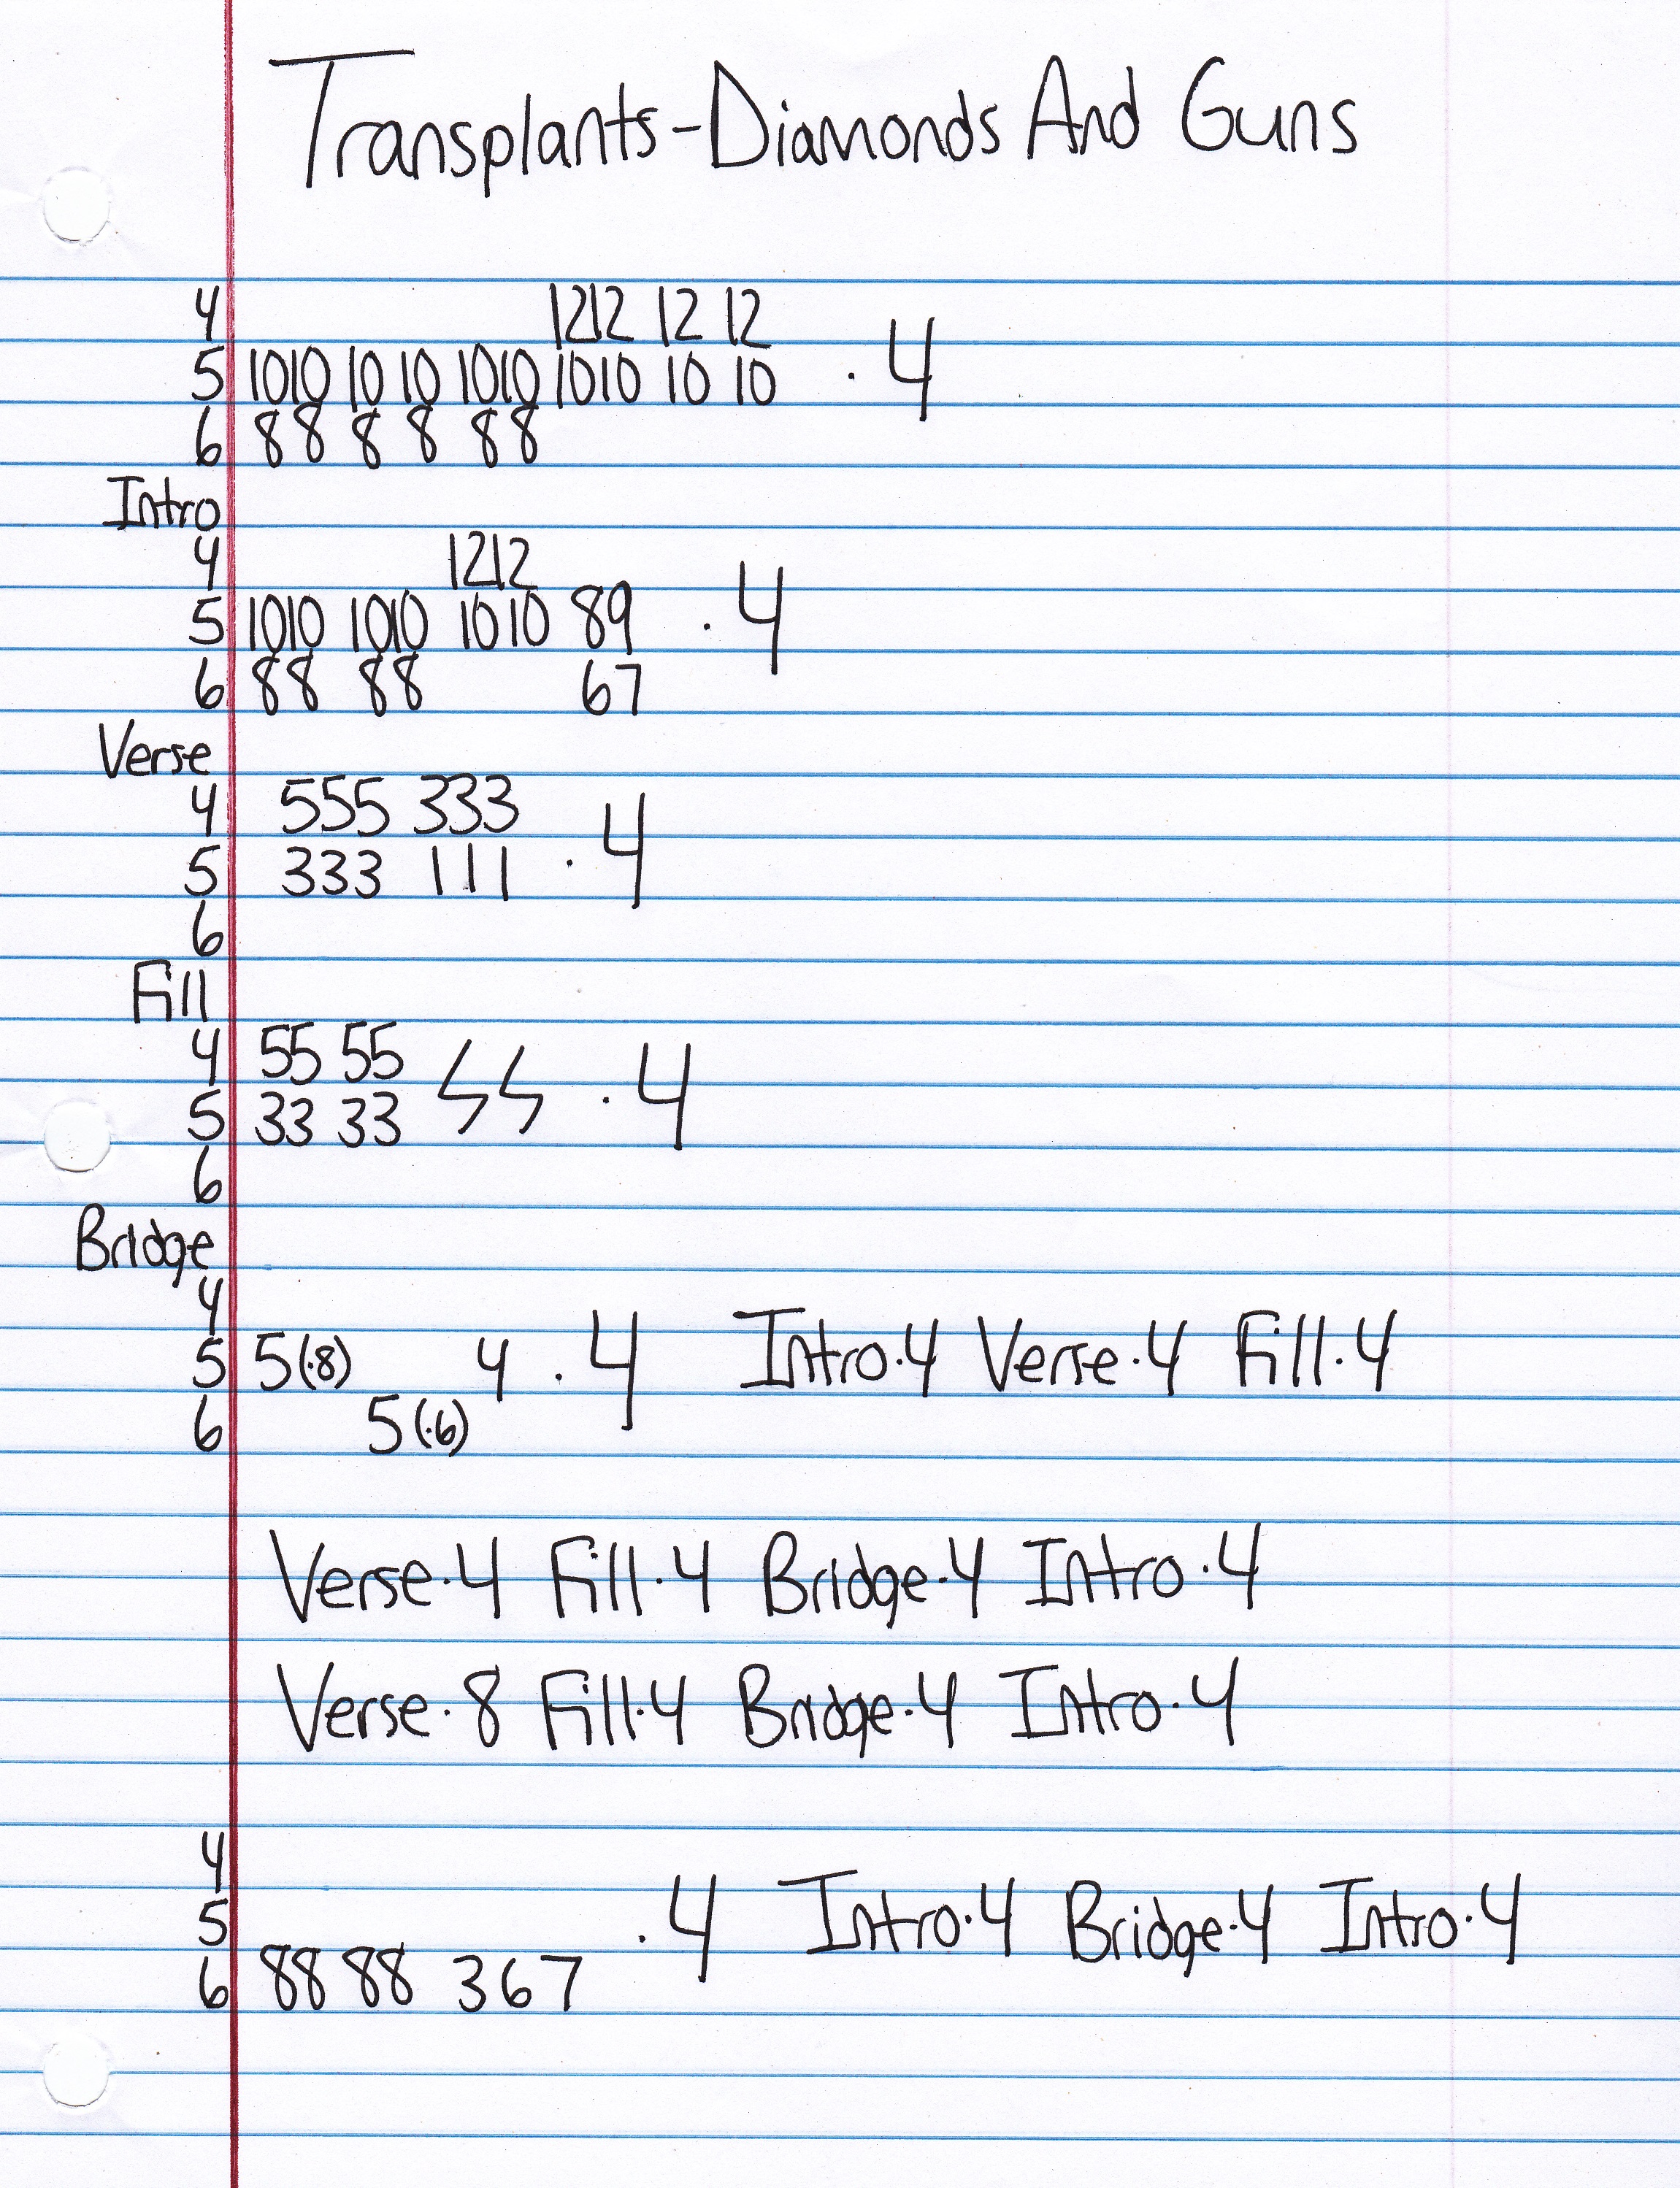 Transplants-Diamonds And Guns
4 1212 12 12
5 1010 10 10 1010 1010 10 10 · 4
6 88 8 8 88
Intro
4 1212
5 1010 1010 1010 89 · 4
6 88 88 67
Verse
4 555 333
5 333 111 · 4
6
Fill
4 55 55
5 33 33 · 4
6
Bridge
4
5 5(·8) 4 · 4 Intro·4 Verse·4 Fill·4
6 5(·6)
Verse·4 Fill·4 Bridge·4 Intro·4
Verse·8 Fill·4 Bridge·4 Intro·4
4
5 · 4 Intro·4 Bridge·4 Intro·4
6 88 88 367